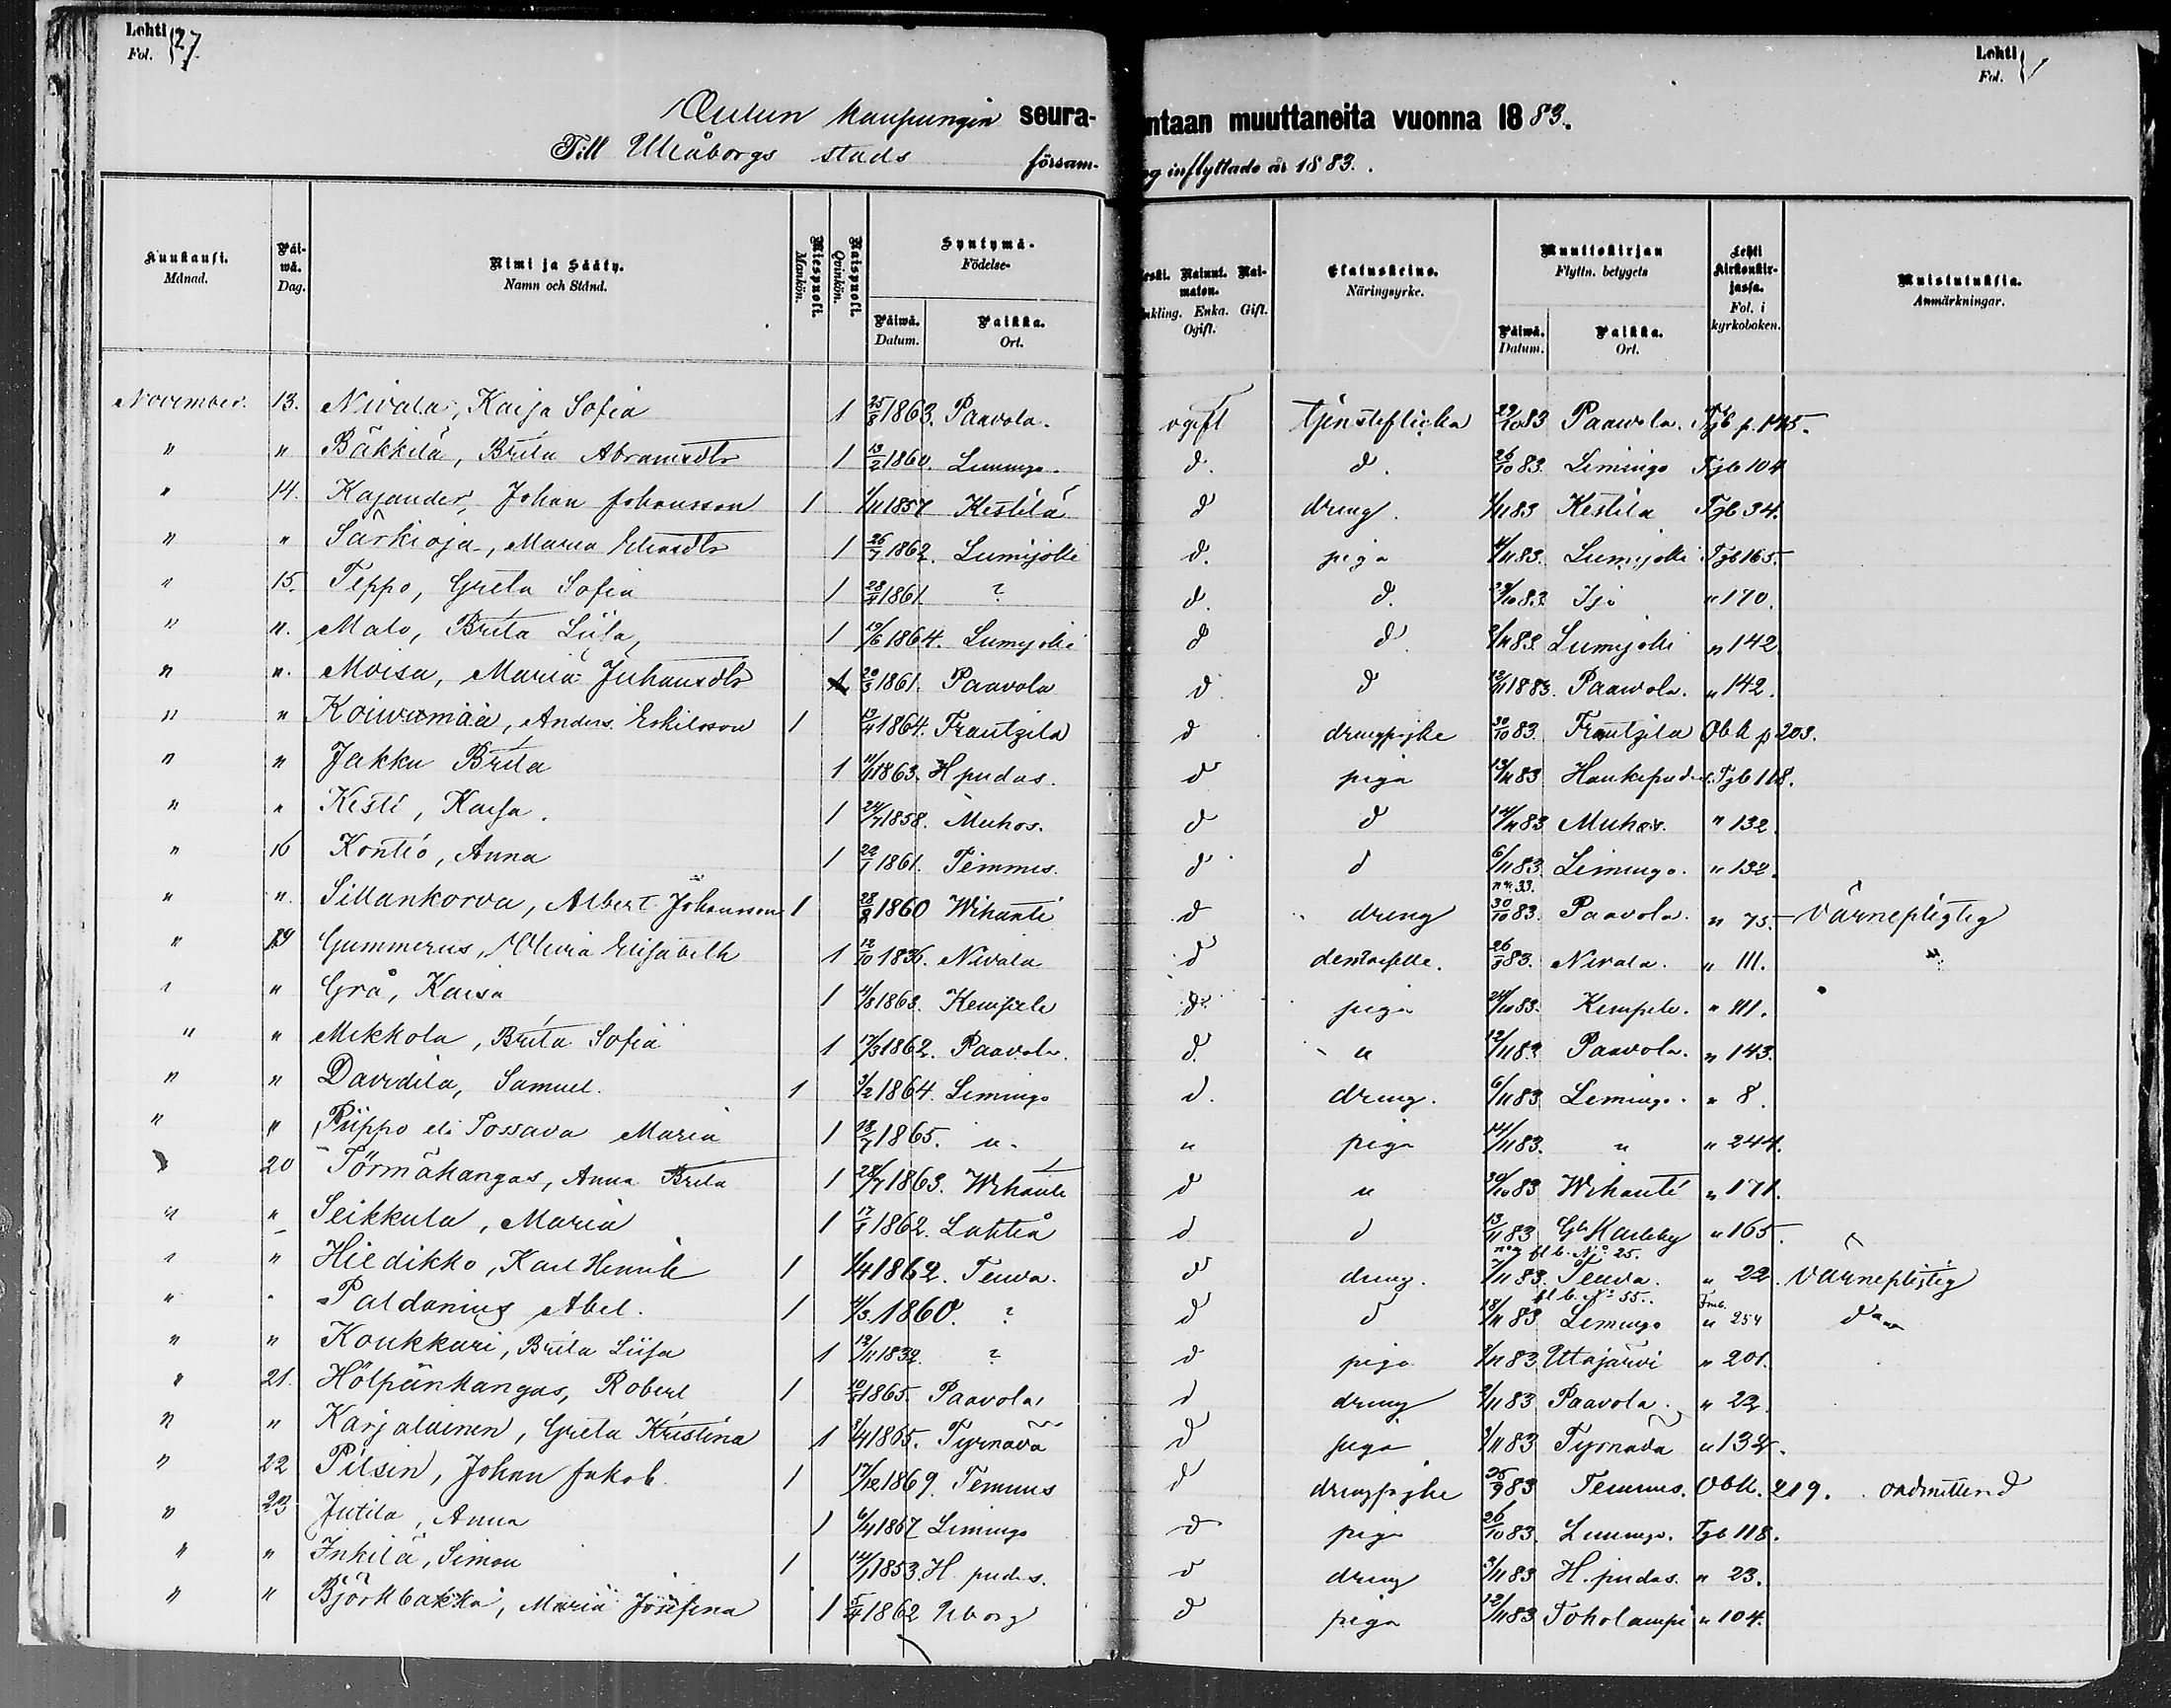 Lehti Fol. 27
Lehti Fol.
Oulun kaupungin seura- ntaan muuttaneita vuonna 1883.
Till Uleåborgs stads försam- g inflyttade år 1883.
Kuukausi. Månad. Päi-wä. Dag. Nimi ja Sääty. Namn och Stånd. Miespuoli. Mankön. Naispuoli. Qvinkön. Syntymä- Födelse- Päiwä. Datum. Paikka. Ort. Leski. Nainut. Nai-maton. Enkling. Enka. Gift. Ogift. Elatuskeino. Näringsyrke. Muuttokirjan Flyttn. betygets Päiwä. Datum. Paikka. Ort. Lehti kirkonkir-jassa. Fol. i kyrkoboken. Muistutuksia. Anmärkningar.
November. 13. Nivala, Kaija Sofia 1 25/8 1863. Paavola. ogift tjensteflicka 29/10 83 Paavola. Tjb p. 145.
" " Bäkkilä, Brita Abramsdtr 1 13/2 1860. Limingo. d. d. 26/10 83. Limingo Tjb 104
" 14. Kajander, Johan Johansson 1 1/11 1857 Kestilä d dreng. 1/11 83 Kestila Tjb 34.
" " Särkioja, Maria Eliasdtr 1 26/7 1862. Lumijoki d. piga 4/11 83. Lumijoki Tjb 165.
" 15. Teppo, Greta Sofia 1 28/4 1861. ? d. d. 29/10 83. Ijo " 170.
" ". Malo, Brita Liisa, 1 19/6 1864. Lumijoki d d 2/11 83. Lumijoki " 142
" ". Moisa, Maria Juhansdtr 1 20/3 1861. Paavola d d 12/11 1883. Paavola. " 142.
" " Koiwumäa, Anders Eskilsson 1 13/4 1864. Frantzila d drengpojke 30/10 83. Frantzila Obk p 203.
" " Jakku Brita 1 11/1 1863. H pudas. d piga 13/11 83 Haukipudas. Tjb 118.
" " Kesti, Kaisa. 1 24/7 1858. Muhos. d d 14/11 83 Muhos. " 132.
" 16 Kontio, Anna 1 22/1 1861. Temmes. d d 6/11 83. Limingo. " 132.
" ". Sillankorva, Albert Johansson 1 28/8 1860 Wihanti d dreng no 33. 30/10 83. Paavola. " 75. Värnepligtig
" 19 Gummerus, Olivia Elisabeth 1 12/10 1836. Nivala d demoiselle. 26/8 83. Nivala. " 111. "
" " Grå, Kaisa 1 11/8 1863. Kempele d. piga 24/10 83. Kempele. " 111.
" " Mikkola, Brita Sofia 1 17/3 1862. Paavola. d. " 12/11 83 Paavola. " 143.
" " Davidila, Samuel. 1 3/2 1864. Limingo d. dreng. 6/11 83 Limingo. " 8.
" " Piippo eli Tossava Maria 1 18/7 1865. " " piga 14/11 83. " " 244.
" 20 Törmäkangas, Anna Brita 1 28/7 1863. Wihanti d " 30/10 83 Wihanti " 171.
" " Seikkula, Maria 1 17/8 1862. Lohteå d d 13/11 83 Gl Karleby " 165.
" " Hiedikko, Karl Henrik 1 1/4 1862. Teuva. d dreng. fl b. No 25. 7/11 83. Teuva. " 22. Värnepligtig
" " Paldanius Abel. 1 4/3 1860. ? d d fl b. No 55. 18/11 83 Limingo Fmb. " 254 d
" " Koukkari, Brita Liisa 1 13/11 1832. ? d piga 9/11 83 Utajärvi " 201.
" 21. Hölpänkangas, Robert 1 10/8 1865. Paavola, d dreng 2/11 83 Paavola. " 22.
" " Karjalainen, Greta Kristina 1 8/4 1865. Tyrnävä d piga 3/11 83 Tyrnävä " 132.
" 22 Pilsin, Johan Jakob. 1 17/12 1869. Temmes d drengpojke 25/9 83 Temmes. Obk. 219. oadmitterad
" 23 Jutila, Anna 1 6/4 1867 Limingo d piga 26/10 83. Limingo. Tjb 118.
" " Inkilä, Simon 1 14/1 1853. H pudas. d dreng 3/11 83 H. pudas. " 23.
" " Björkbakka, Maria Josefina 1 5/4 1862 Uborg d piga 12/11 83 Toholampi " 104.